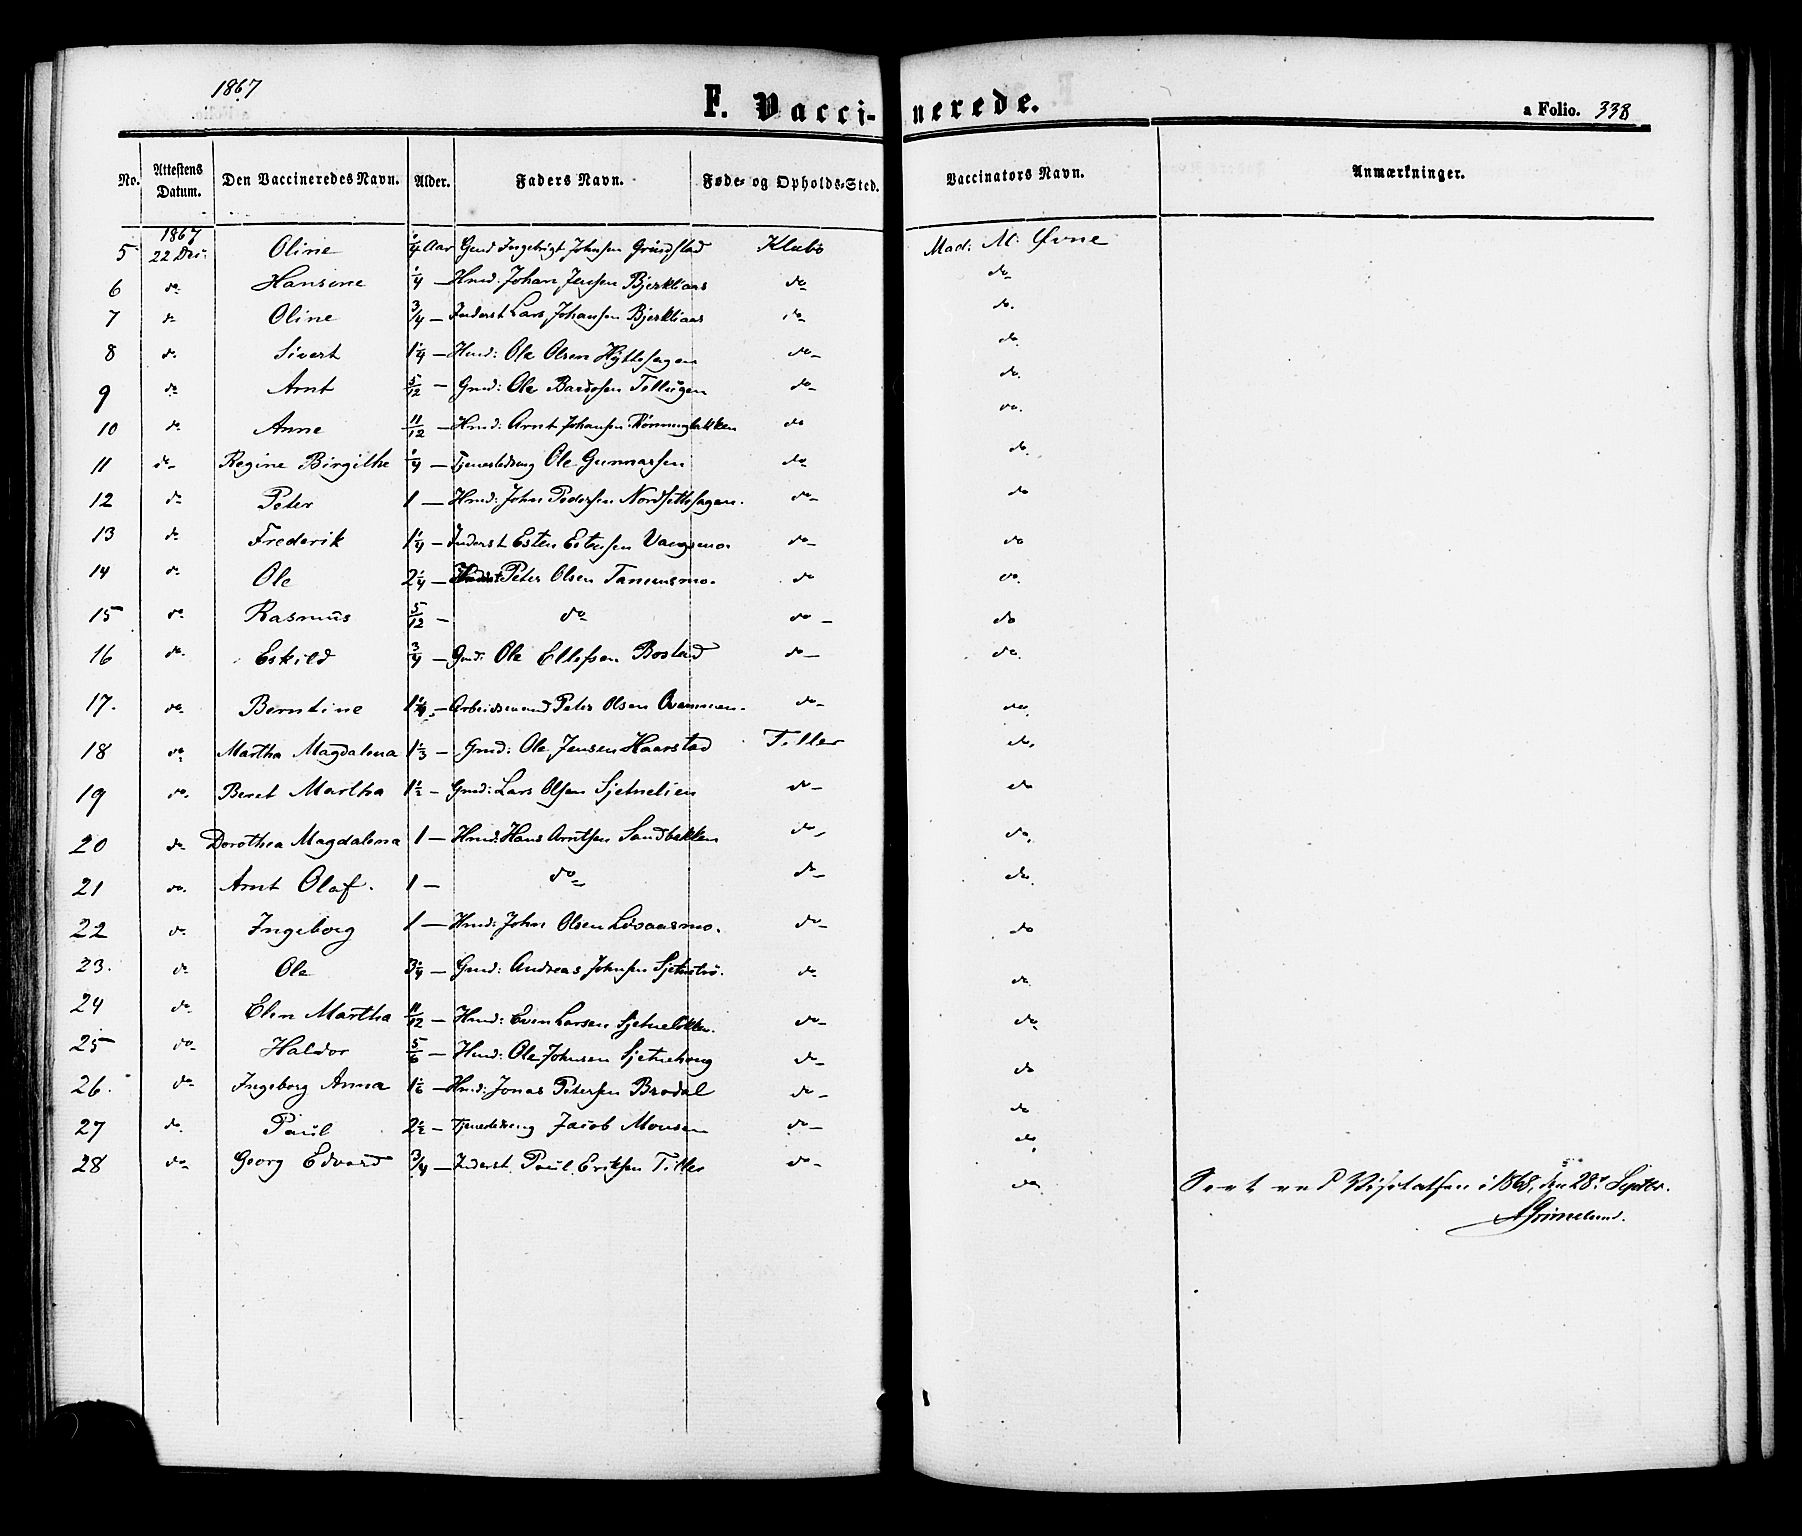 1867
F. Vaccinerede.
a Folio. 338
No. Attestens Datum. Den Vaccineredes Navn. Alder. Faders Navn. Føde- og Opholds-Sted. Vaccinators Navn. Anmærkninger.
5 1867 22 Dec. Oline 1/4 Aar Gmd Ingebrigt Johnsen Klæbo Mad. M. Øvne
6 do Hansine 1/4 — Hmd: Johan Jensen Bjerkliaas do do
7 do Oline 3/4 — Inderst Lars Johansen Bjerkliaas do do.
8 do. Sivert 1 1/4 — Hmd: Ole Olsen Hyttehagen do do.
9 do Arnt 5/12 — Gmd: Ole Bardosen Tellugen do do.
10 do Anne 11/12 — Hmd: Arnt Johansen Rønningbakken do do.
11 do Regine Birgithe 1/4 — Tjenestedreng Ole Gunnarsen do do.
12 do Peter 1 — Hmd: John Pedersen Nordsettehagen. do do
13 do Frederik 1 1/4 — Inderst Esten Estensen Vangsmo. do do
14 do Ole 2 1/4 — Peter Olsen Tanemsmo. do do.
15 do Rasmus 5/12 — do do do
16 do. Eskild 3/4 — Gmd: Ole Ellefsen Bostad do do.
17. do. Berntine 1 1/4 — Arbeidsmand Peter Olsen do do.
18 do Martha Magdalena 1 1/3 — Gmd: Ole Jensen Haarstad Tiller do.
19 do. Beret Martha 1 1/2 — Gmd: Lars Olsen Sjetnelien do do
20 do Dorothea Magdalena 1 — Hmd: Hans Arntsen Sandbakken do do.
21 do. Arnt Olaf. 1 — do do do.
22 do. Ingeborg 1 — Hmd: John Olsen Løvaasmo. do do
23. do Ole 3 1/4 — Gmd: Andreas Johnsen do do.
24 do Elen Martha 11/12 — Hmd: Even Larsen do do
25 do Haldor 5/6 — Hmd: Ole Johnsen Sjetnehaug do do
26. do Ingeborg Anna 1 1/6 — Hmd: Jonas Petersen Brødal do do
27 do. Paul 2 1/2 — Tjenestedreng Jacob Monsen do do.
28 do Georg Edvard 3/4 — Inderst. Paul Eriksen Tiller do do.
Seet ved Visitatsen i 1868, den 28de Septbr.
AGrimelund.